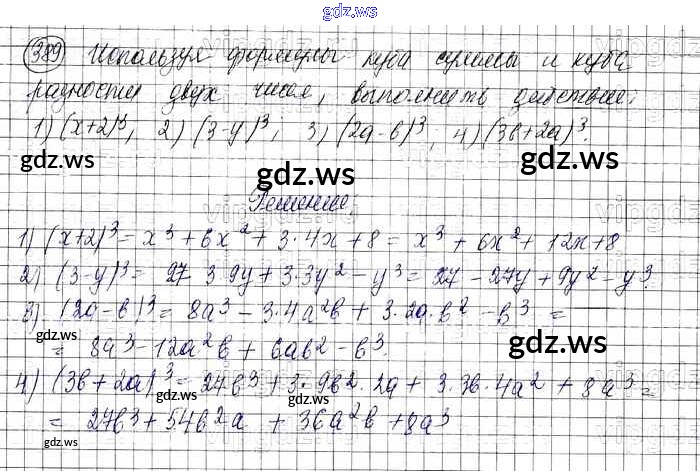 gdz.ws
389 Используя формулы куба суммы и куба
разности двух чисел, выполнить действие:
1) (x+2)³, 2) (3-y)³; 3) (2a-b)³, 4) (3b+2a)³.
gdz.ws gdz.ws gdz.ws
Решение.
1) (x+2)³ = x³ + 6x² + 3·4x + 8 = x³ + 6x² + 12x + 8
2) (3-y)³ = 27 3·9y + 3·3y² - y³ = 27 - 27y + 9y² - y³.
3) (2a-b)³ = 8a³ - 3·4a²b + 3·2a·b² - b³ =
gdz.ws gdz.ws gdz.ws
= 8a³ - 12a²b + 6ab² - b³.
4) (3b+2a)³ = 27b³ + 3·9b²·2a + 3·3b·4a² + 8a³ =
gdz.ws gdz.ws
= 27b³ + 54b²a + 36a²b + 8a³
gdz.ws gdz.ws gdz.ws